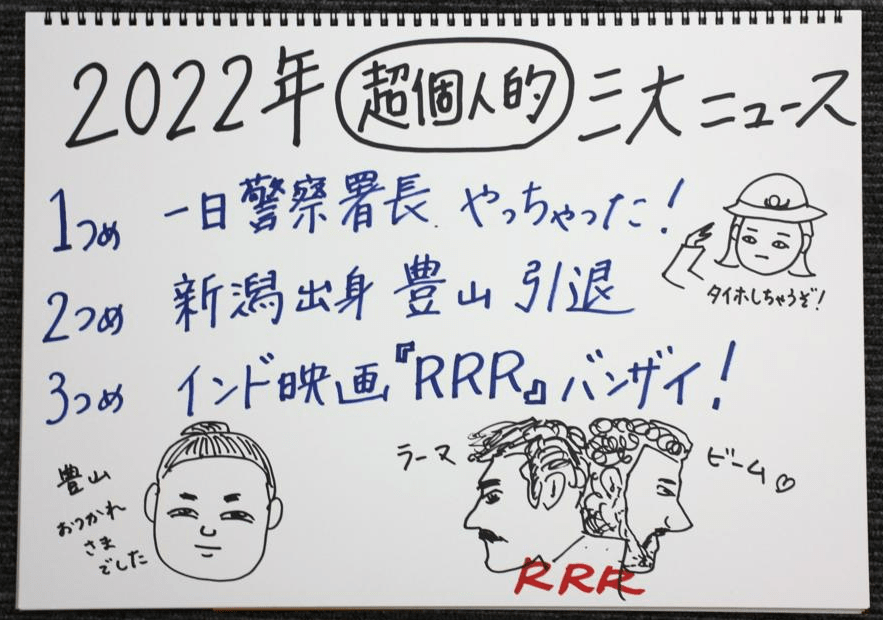 2022年 超個人的 三大ニュース
1つめ 一日警察署長 やっちゃった!
タイホしちゃうぞ!
2つめ 新潟出身 豊山 引退
3つめ インド映画『RRR』バンザイ!
豊山
おつかれ
さま
でした
ラーマ
ビーム♡
RRR